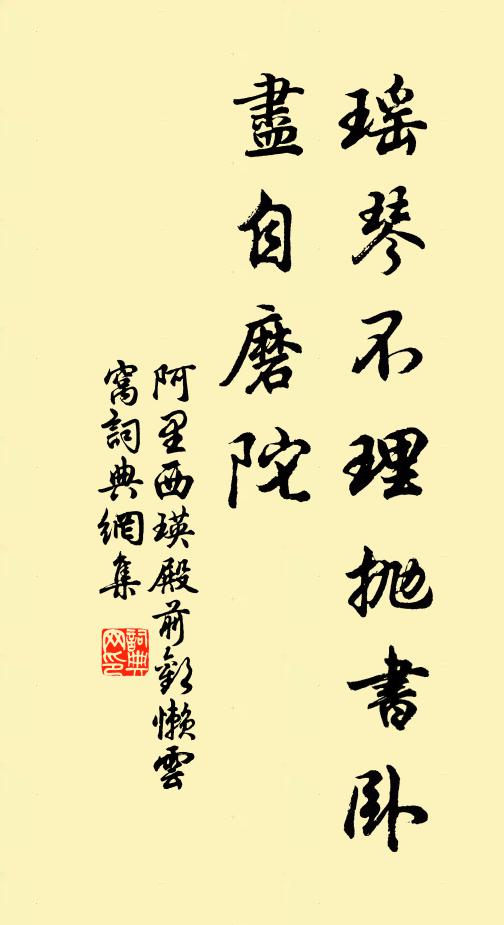 瑶琴不理抛書卧
盡自磨陀
阿里西瑛殿前歡懶雲
窩詞典網集
詞典
网印